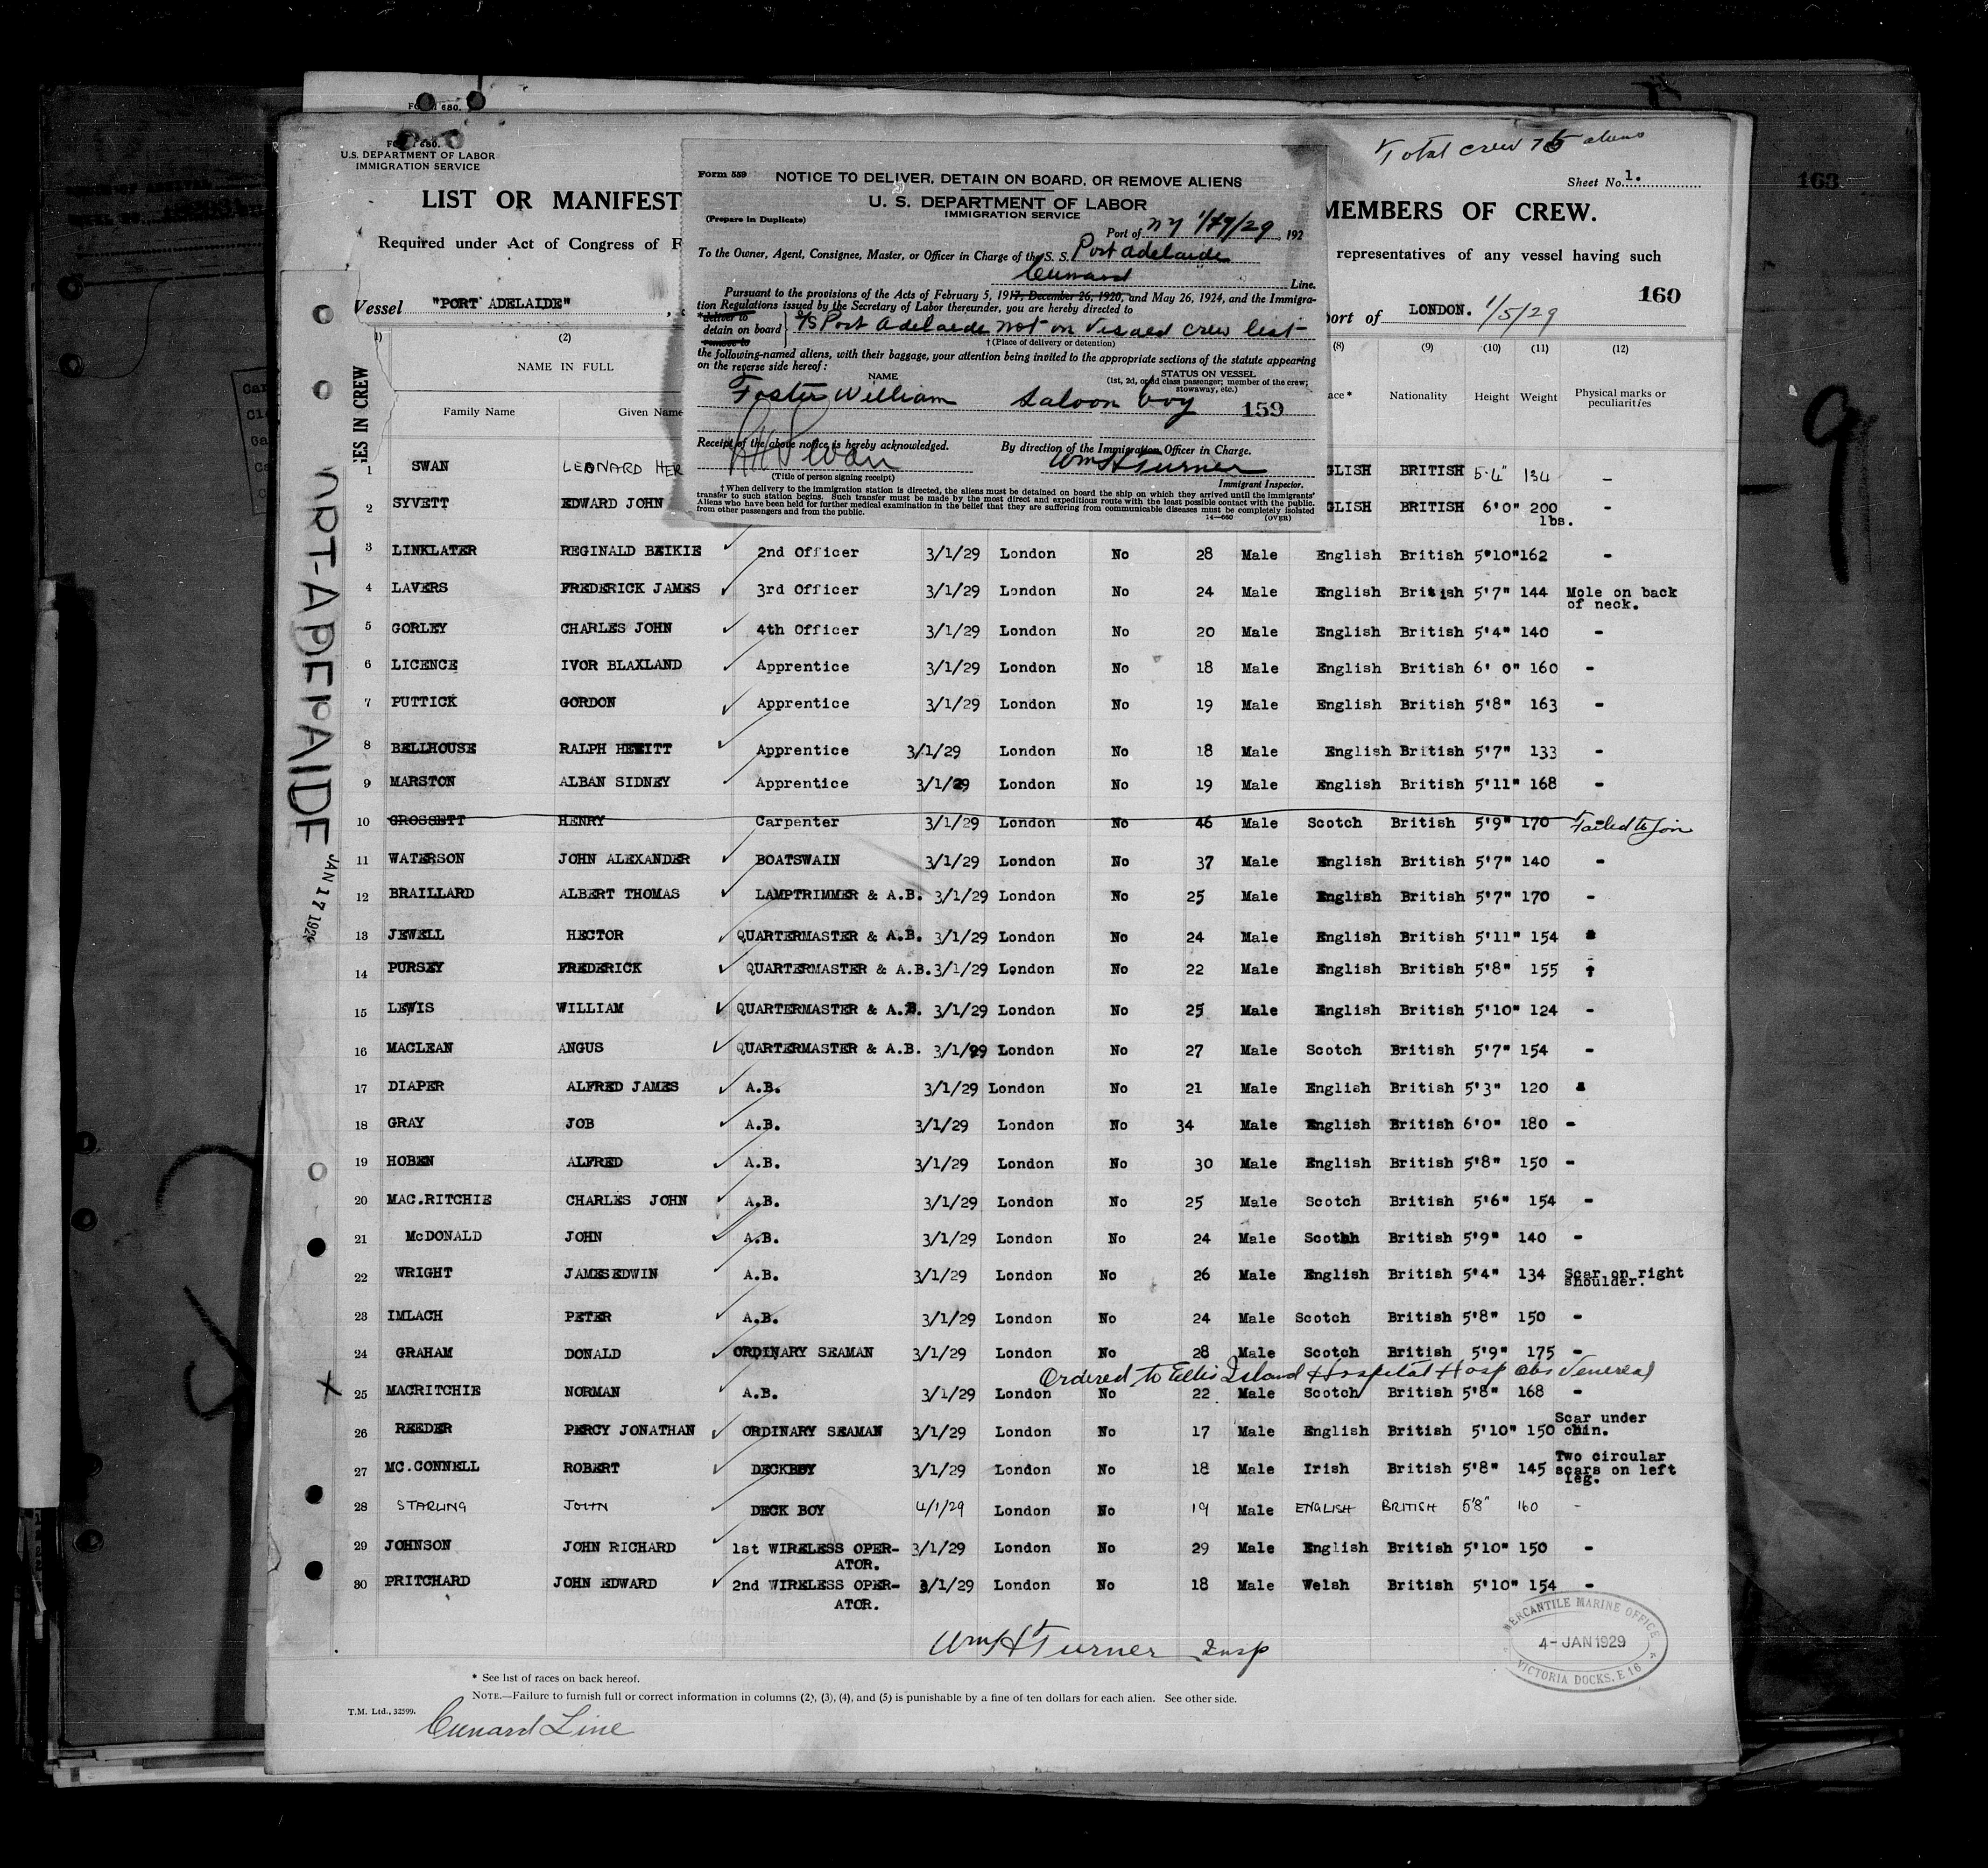 FORM 680.
U.S. DEPARTMENT OF LABOR
IMMIGRATION SERVICE
Total crew 75 aliens
Sheet No. 1.
163
LIST OR MANIFEST
MEMBERS OF CREW.
Required under Act of Congress of F
representatives of any vessel having such
160
Vessel "PORT ADELAIDE"
port of LONDON. 1/5/29
Form 559
NOTICE TO DELIVER, DETAIN ON BOARD, OR REMOVE ALIENS
U. S. DEPARTMENT OF LABOR
IMMIGRATION SERVICE
(Prepare in Duplicate)
Port of NY 1/17/29, 192
To the Owner, Agent, Consignee, Master, or Officer in Charge of the S. S. Port Adelaide
Cunard Line.
Pursuant to the provisions of the Acts of February 5, 1917, December 26, 1920, and May 26, 1924, and the Immigra-
tion Regulations issued by the Secretary of Labor thereunder, you are hereby directed to
*deliver to
detain on board S/S Port Adelaide not on visaed crew list
remove to
†(Place of delivery or detention)
the following-named aliens, with their baggage, your attention being invited to the appropriate sections of the statute appearing
on the reverse side hereof:
NAME
STATUS ON VESSEL
(1st, 2d, or 3d class passenger; member of the crew;
stowaway, etc.)
Foster William Saloon boy 159
Receipt of the above notice is hereby acknowledged.
By direction of the Immigration Officer in Charge.
Swan
Wm H Turner
(Title of person signing receipt)
Immigrant Inspector.
†When delivery to the immigration station is directed, the aliens must be detained on board the ship on which they arrived until the immigrants'
transfer to such station begins. Such transfer must be made by the most direct and expeditious route with the least possible contact with the public.
Aliens who have been held for further medical examination in the belief that they are suffering from communicable diseases must be completely isolated
from other passengers and from the public.
14—660 (OVER)
(2) (8) (9) (10) (11) (12)
NAME IN FULL
Family Name Given Name ace* Nationality Height Weight Physical marks or
peculiarities
1 SWAN LEONARD HER GLISH BRITISH 5'4" 134 -
2 SYVETT EDWARD JOHN GLISH BRITISH 6'0" 200 -
lbs.
3 LINKLATER REGINALD BEIKIE 2nd Officer 3/1/29 London No 28 Male English British 5'10" 162 -
4 LAVERS FREDERICK JAMES 3rd Officer 3/1/29 London No 24 Male English British 5'7" 144 Mole on back
of neck.
5 GORLEY CHARLES JOHN 4th Officer 3/1/29 London No 20 Male English British 5'4" 140 -
6 LICENCE IVOR BLAXLAND Apprentice 3/1/29 London No 18 Male English British 6' 0" 160 -
7 PUTTICK GORDON Apprentice 3/1/29 London No 19 Male English British 5'8" 163 -
8 BELLHOUSE RALPH HEWITT Apprentice 3/1/29 London No 18 Male English British 5'7" 133 -
9 MARSTON ALBAN SIDNEY Apprentice 3/1/29 London No 19 Male English British 5'11" 168 -
10 GROSSETT HENRY Carpenter 3/1/29 London No 46 Male Scotch British 5'9" 170 Failed to join
11 WATERSON JOHN ALEXANDER BOATSWAIN 3/1/29 London No 37 Male English British 5'7" 140 -
12 BRAILLARD ALBERT THOMAS LAMPTRIMMER & A.B. 3/1/29 London No 25 Male English British 5'7" 170 -
13 JEWELL HECTOR QUARTERMASTER & A.B. 3/1/29 London No 24 Male English British 5'11" 154 -
14 PURSEY FREDERICK QUARTERMASTER & A.B. 3/1/29 London No 22 Male English British 5'8" 155
15 LEWIS WILLIAM QUARTERMASTER & A.B. 3/1/29 London No 25 Male English British 5'10" 124 -
16 MACLEAN ANGUS QUARTERMASTER & A.B. 3/1/29 London No 27 Male Scotch British 5'7" 154 -
17 DIAPER ALFRED JAMES A.B. 3/1/29 London No 21 Male English British 5'3" 120 -
18 GRAY JOB A.B. 3/1/29 London No 34 Male English British 6'0" 180 -
19 HOBEN ALFRED A.B. 3/1/29 London No 30 Male English British 5'8" 150 -
20 MAC.RITCHIE CHARLES JOHN A.B. 3/1/29 London No 25 Male Scotch British 5'6" 154 -
21 McDONALD JOHN A.B. 3/1/29 London No 24 Male Scotch British 5'9" 140 -
22 WRIGHT JAMES EDWIN A.B. 3/1/29 London No 26 Male English British 5'4" 134 Scar on right
shoulder.
23 IMLACH PETER A.B. 3/1/29 London No 24 Male Scotch British 5'8" 150 -
24 GRAHAM DONALD ORDINARY SEAMAN 3/1/29 London No 28 Male Scotch British 5'9" 175 -
Ordered to Ellis Island Hospital Hosp obs Venereal
X 25 MACRITCHIE NORMAN A.B. 3/1/29 London No 22 Male Scotch British 5'8" 168 -
26 REEDER PERCY JONATHAN ORDINARY SEAMAN 3/1/29 London No 17 Male English British 5'10" 150 Scar under
chin.
27 MC.CONNELL ROBERT DECKBOY 3/1/29 London No 18 Male Irish British 5'8" 145 Two circular
scars on left
leg.
28 STARLING JOHN DECK BOY 4/1/29 London No 19 Male ENGLISH BRITISH 5'8" 160 -
29 JOHNSON JOHN RICHARD 1st WIRELESS OPER- 3/1/29 London No 29 Male English British 5'10" 150 -
ATOR.
30 PRITCHARD JOHN EDWARD 2nd WIRELESS OPER- 3/1/29 London No 18 Male Welsh British 5'10" 154 -
ATOR.
Wm H Turner Insp
MERCANTILE MARINE OFFICE
4-JAN 1929
VICTORIA DOCKS. E 16
* See list of races on back hereof.
NOTE.—Failure to furnish full or correct information in columns (2), (3), (4), and (5) is punishable by a fine of ten dollars for each alien. See other side.
T.M. Ltd., 32599.
Cunard Line
ORT-ADELAIDE
JAN 17 192
IES IN CREW